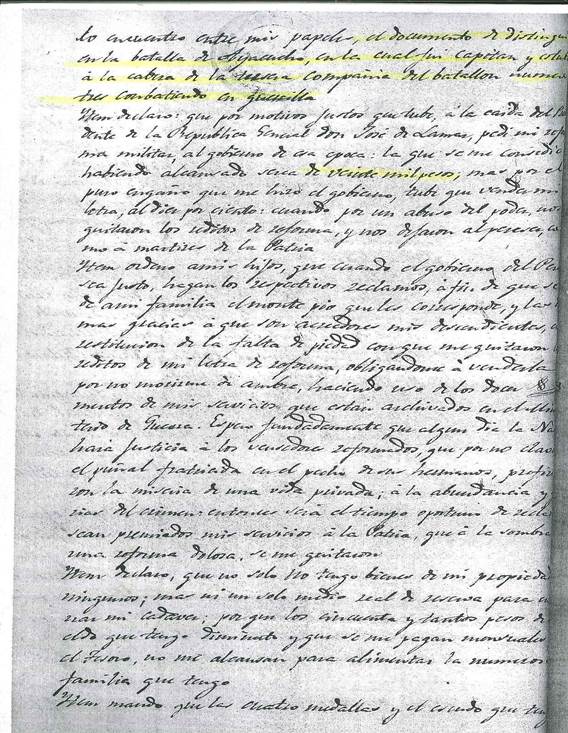 lo encuentro entre mis papeles, el documento de distingui
en la batalla de Ayacucho, en la cual fui capitan y
à la cabeza de la tersera compañia del batallon numero
tres combatiendo en guerilla
Item declaro: que por motivos justos que tube, à la caida del Pre
dente de la Republica General don José de Lamar, pedi mi refo
ma militar, al gobierno de esa epoca: la que se me consedio
habiendo alcansado serca de veinte mil pesos, mas por el
puro engaño que me hiso el gobierno, tube que vender mi
letra, al dies por ciento: cuando por un abuso del poder, nos
quitaron los reditos de reforma, y nos dejaron al pereser, co
mo à martires de la Patria
Item ordeno a mis hijos, que cuando el gobierno del Per
sea justo, hagan los respectivos reclamos, à fin de que se
de a mi familia el monte pio que les corresponde, y las
mas gracias à que son acreedores mis desendientes,
restitucion de la falta de piedad con que me quitaron
reditos de mi letra de reforma, obligandome à venderla
por no morirme de ambre, haciendo uso de los docu
mentos de mis servicios que estan archivados en el Min
terio de Guerra. Espero fundadamente que algun dia la Na
hara justicia à los vensedores reformados, que por no clava
el puñal fratrisida en el pecho de sus hermanos, prefir
con la miseria de una vida privada; à la abundancia y
rias del crimen: entonses será el tiempo oportuno de recla
sean premiados mis servicios à la Patria, que à la sombra
una reforma dolosa, se me quitaron
Item declaro, que no solo no tengo bienes de mi propiedad
ningunos; mas ni un solo medio real de reserva para
rrar mi cadaver; por que los cincuenta y tantos pesos de
eldo que tengo diminuto y que se me pagan mensuales
el Tesoro, no me alcansan para alimentar la numeros
familia que tengo
Item mando que las cuatro medallas y el escudo que teng